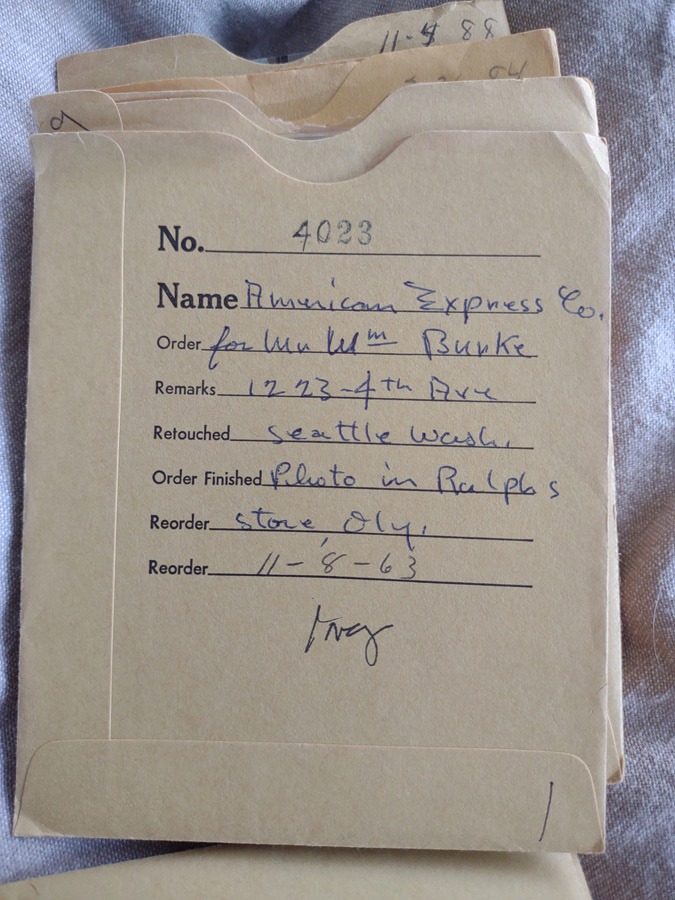 11-4 88
No. 4023
Name American Express Co.
Order for Mr Wm Burke
Remarks 1223-4th Ave
Retouched Seattle Wash.
Order Finished Photo in Ralphs
Reorder store, Oly.
Reorder 11-8-63